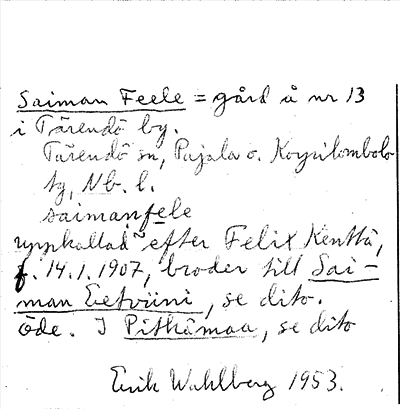 Saiman Feele = gård å nr 13
i Tärendö by.
Tärendö sn, Pajala o. Korpilombolo
tg, Nb. l.
saimanfele
uppkallad efter Felix Kenttä,
f. 14.1.1907, broder till Sai-
man Eetviini, se dito.
Öde. I Pitkämaa, se dito
Erik Wahlberg 1953.